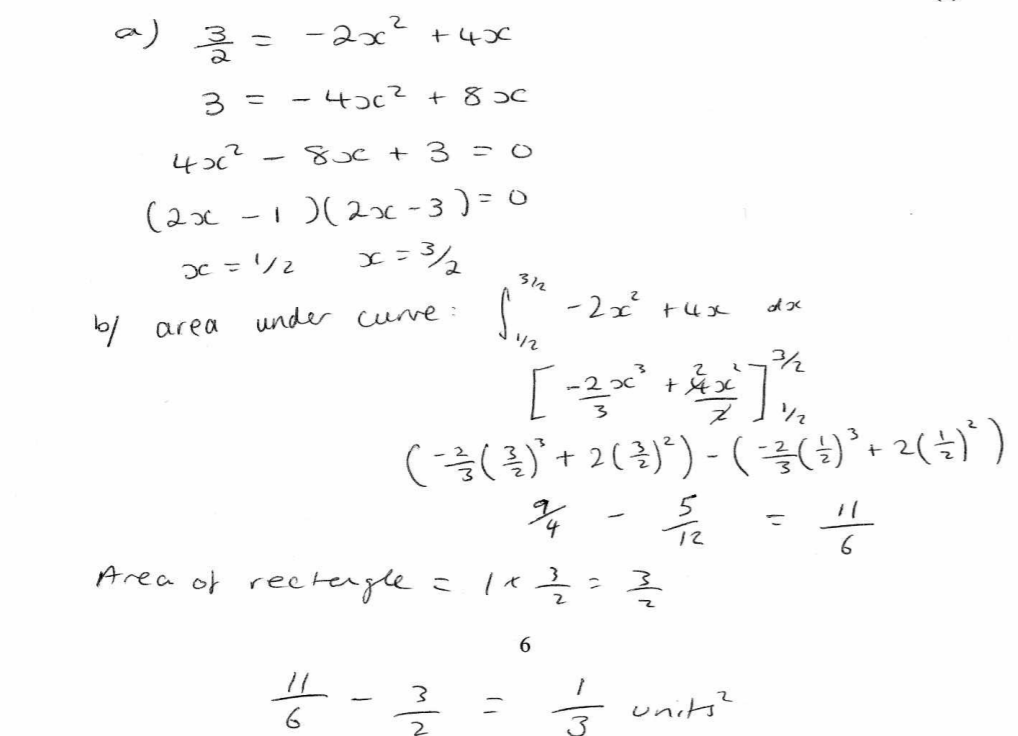 a) 3/2 = -2x² + 4x
3 = -4x² + 8x
4x² - 8x + 3 = 0
(2x - 1)(2x - 3) = 0
x = 1/2 x = 3/2
b/ area under curve: ∫_{1/2}^{3/2} -2x² + 4x dx
[-2x³/3 + 4x²/2 2]_{1/2}^{3/2}
(-2/3(3/2)³ + 2(3/2)²) - (-2/3(1/2)³ + 2(1/2)²)
9/4 - 5/12 = 11/6
Area of rectangle = 1 × 3/2 = 3/2
6
11/6 - 3/2 = 1/3 units²